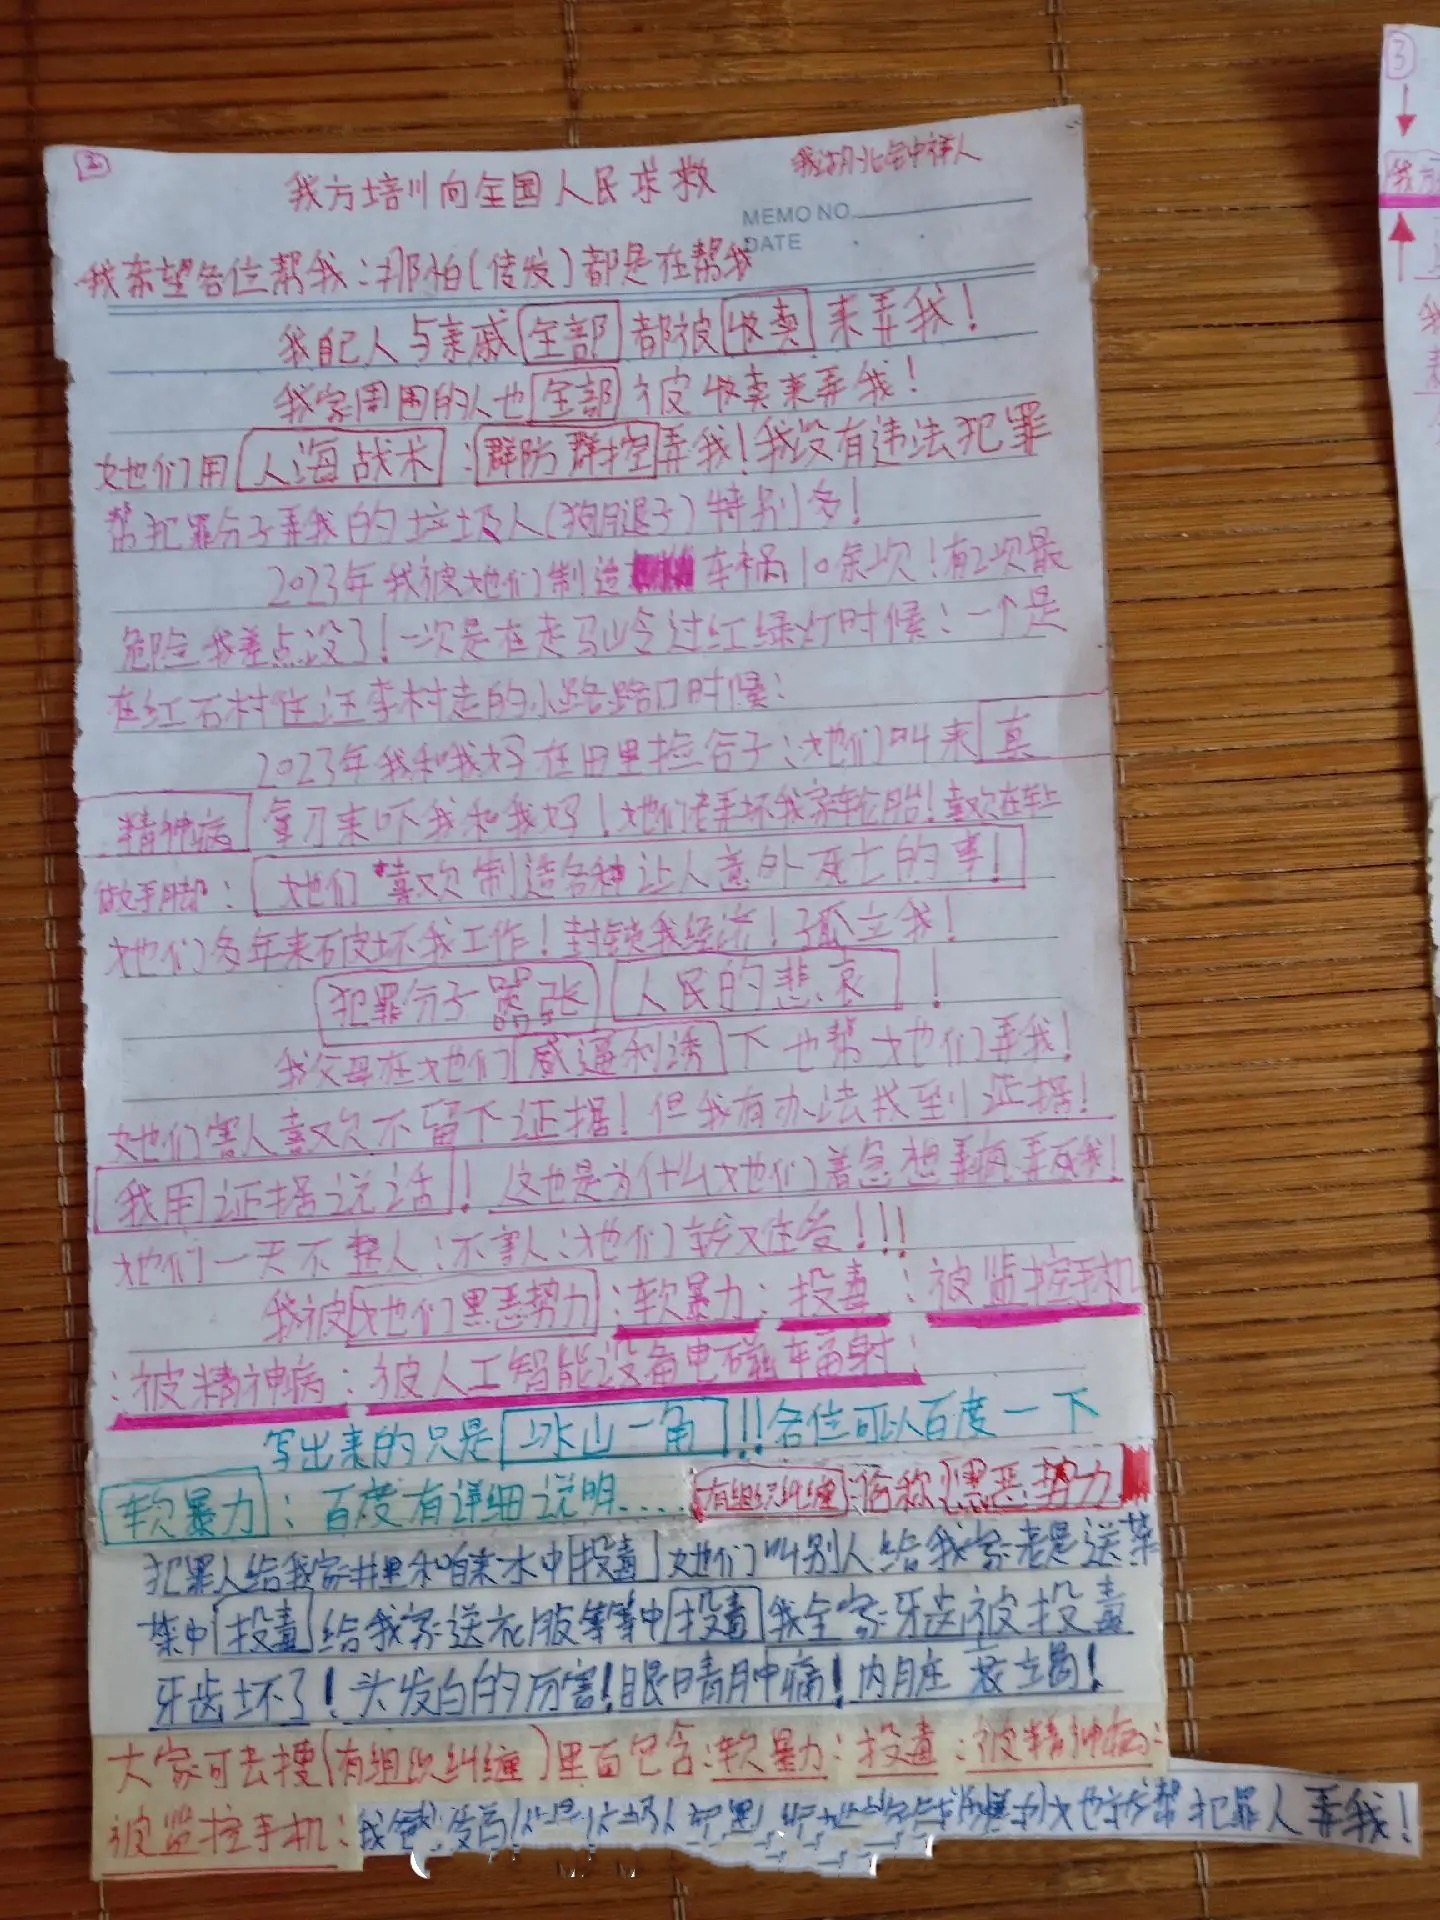 ②
我方培川向全国人民求救
我湖北全中祥人
MEMO NO.
DATE
我希望各位帮我:那怕(传发)都是在帮我
我自己人与亲戚全部都被收卖来弄我!
我家周围的人也全部被收卖来弄我!
她们用人海战术:群防群控弄我!我没有违法犯罪
帮犯罪分子弄我的垃圾人(狗腿子)特别多!
2023年我被她们制造车祸10余次!有2次最
危险我差点没了!一次是在走马山令过红绿灯时候:一个是
在红石村住汪李村走的小路路口时候:
2023年我和我妈在田里捡谷子:她们叫来真
精神病拿刀来吓我和我妈!她们老弄坏我家轮胎!喜欢在车上
做手脚:她们喜欢制造各种让人意外死亡的事!
她们多年来破坏我工作!封锁我经济!孤立我!
犯罪分子嚣张 人民的悲哀!
我父母在她们威逼利诱下也帮她们弄我!
她们害人喜欢不留下证据!但我有办法找到证据!
我用证据说话!这也是为什么她们着急想弄疯弄死我!
她们一天不整人:不害人:她们就难受!!!
我被她们黑恶势力:软暴力:投毒:被监控手机
:被精神病:被人工智能设备电磁辐射:
写出来的只是冰山一角!!各位可以百度一下
软暴力:百度有详细说明....有组织纠缠:俗称:黑恶势力
犯罪人给我家井里和自来水中投毒她们叫别人给我家老是送菜
菜中投毒给我家送衣服等等中投毒我全家牙齿被投毒
牙齿坏了!头发白的厉害!眼睛肿痛!内脏衰竭!
大家可去搜(有组织纠缠)里面包含:软暴力:投毒:被精神病:
被监控手机:我爸 帮犯罪人弄我!
③
我方